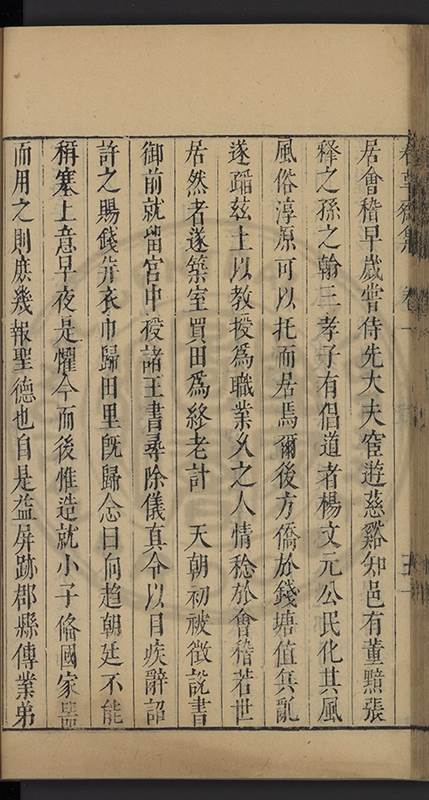 春草齋集 卷一
居會稽早歲嘗侍先大夫宦遊慈谿知邑有董黯張
釋之孫之翰三孝子有倡道者楊文元公民化其風
風俗淳厚可以托而居焉爾後方僑於錢塘值兵亂
遂蹈茲土以教授爲職業久之人情稔於會稽若世
居然者遂築室買田爲終老計 天朝初被徵說書
御前就留宮中授諸王書尋除儀真令以目疾辭詔
許之賜錢幷衣巾歸田里既歸念曰向趨朝廷不能
稱塞上意早夜是懼今而後惟造就小子俻國家器
而用之則庶幾報聖德也自是益屏跡郡縣傳業弟